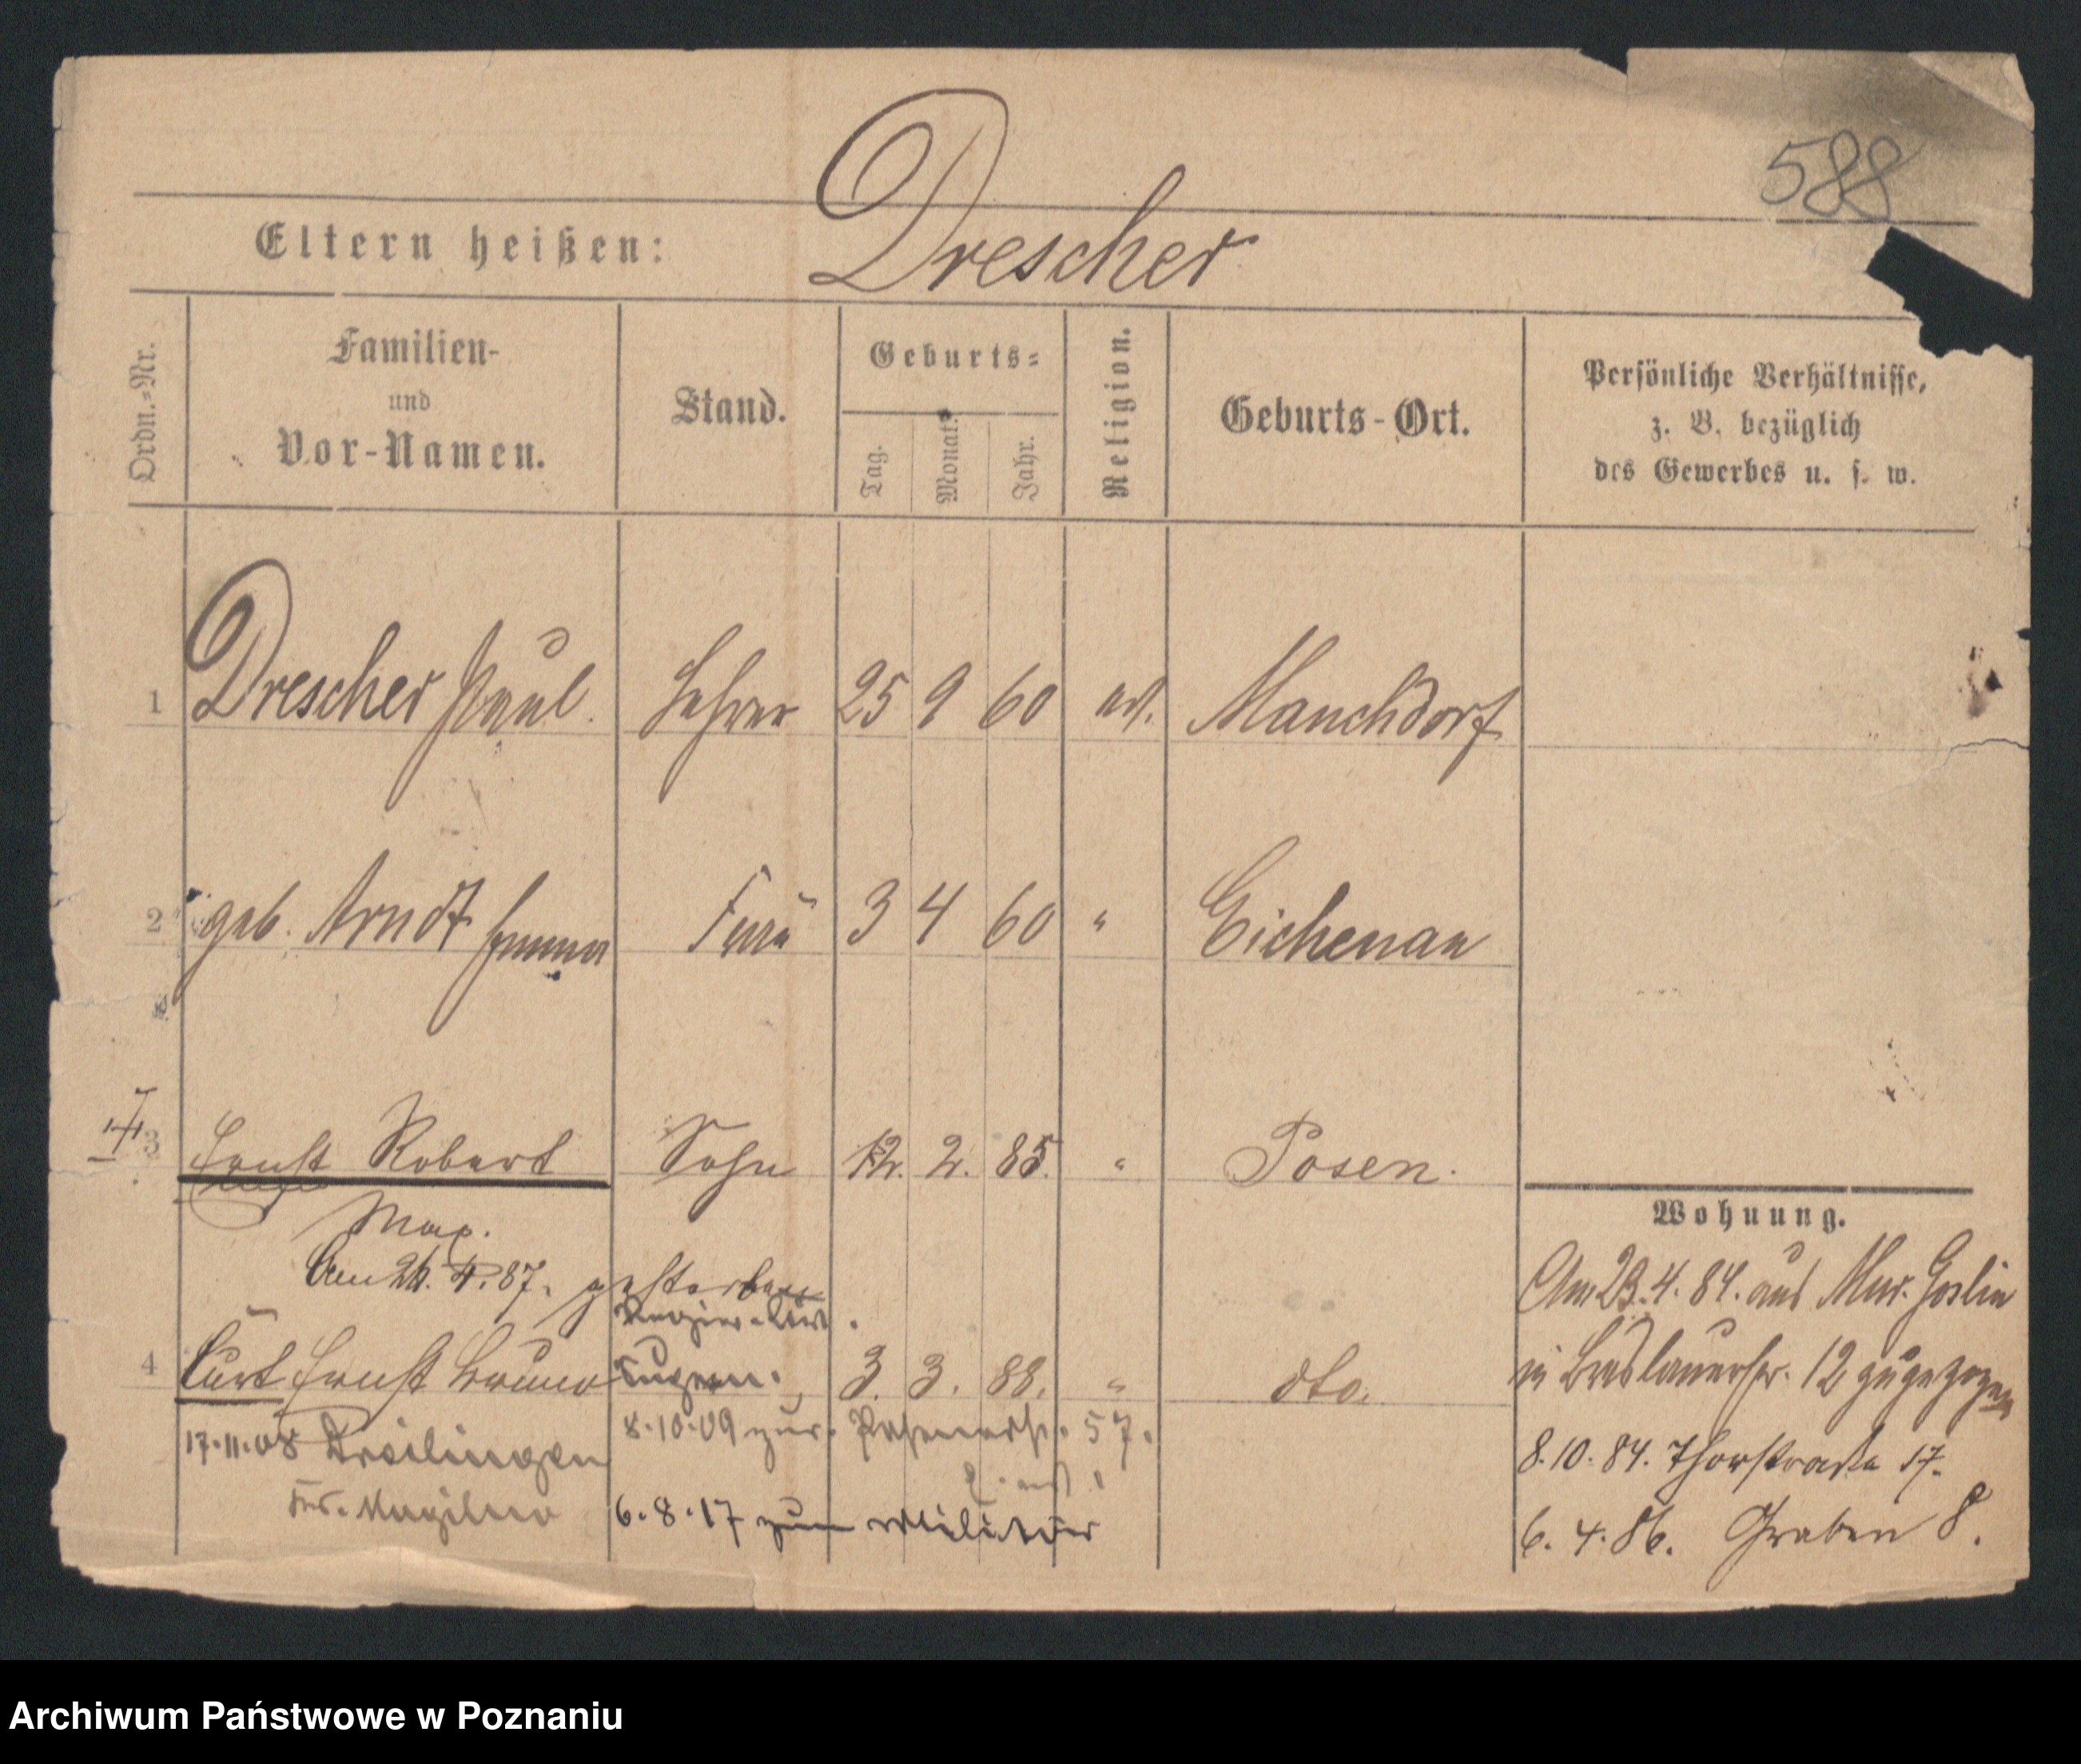 588
Eltern heißen: Drescher
Ordn.-Nr.
Familien-
und
Vor-Namen.
Stand.
Geburts-
Tag.
Monat.
Jahr.
Religion.
Geburts-Ort.
Persönliche Verhältnisse,
z. B. bezüglich
des Gewerbes u. s. w.
1 Drescher Paul. Lehrer 25 9 60 ev. Manchdorf
2 geb. Arndt Emma Frau 3 4 60 " Eichenau
3 Ernst Robert Sohn 12. 2. 85. " Posen.
Max.
Am 26. 4. 87. gestorben
4 Curt Ernst Bruno 3. 3. 88. " dto.
17.11.08 Dreilingen
Krs. Mogilno
8.10.09 zur. 57.
6.8.17 zum Militär
Wohnung.
Am 23.4.84. aus Mur. Goslin
in Breslauerstr. 12 zugezogen
8.10.84. Thorstraße 17.
6.4.86. Graben 8.
Archiwum Państwowe w Poznaniu